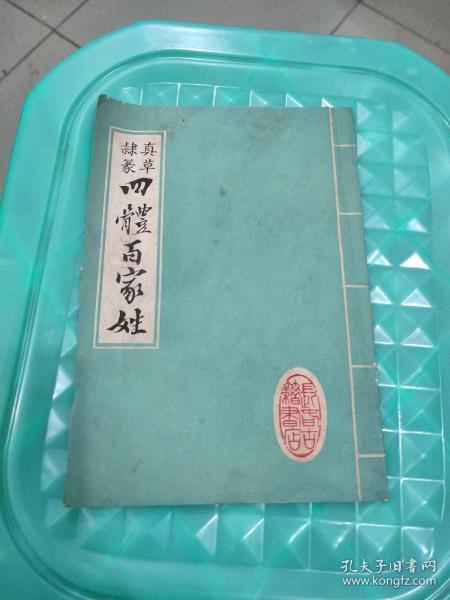 真草
隸篆
四體百家姓
長春古
籍書店
孔夫子旧书网
www.kongfz.com